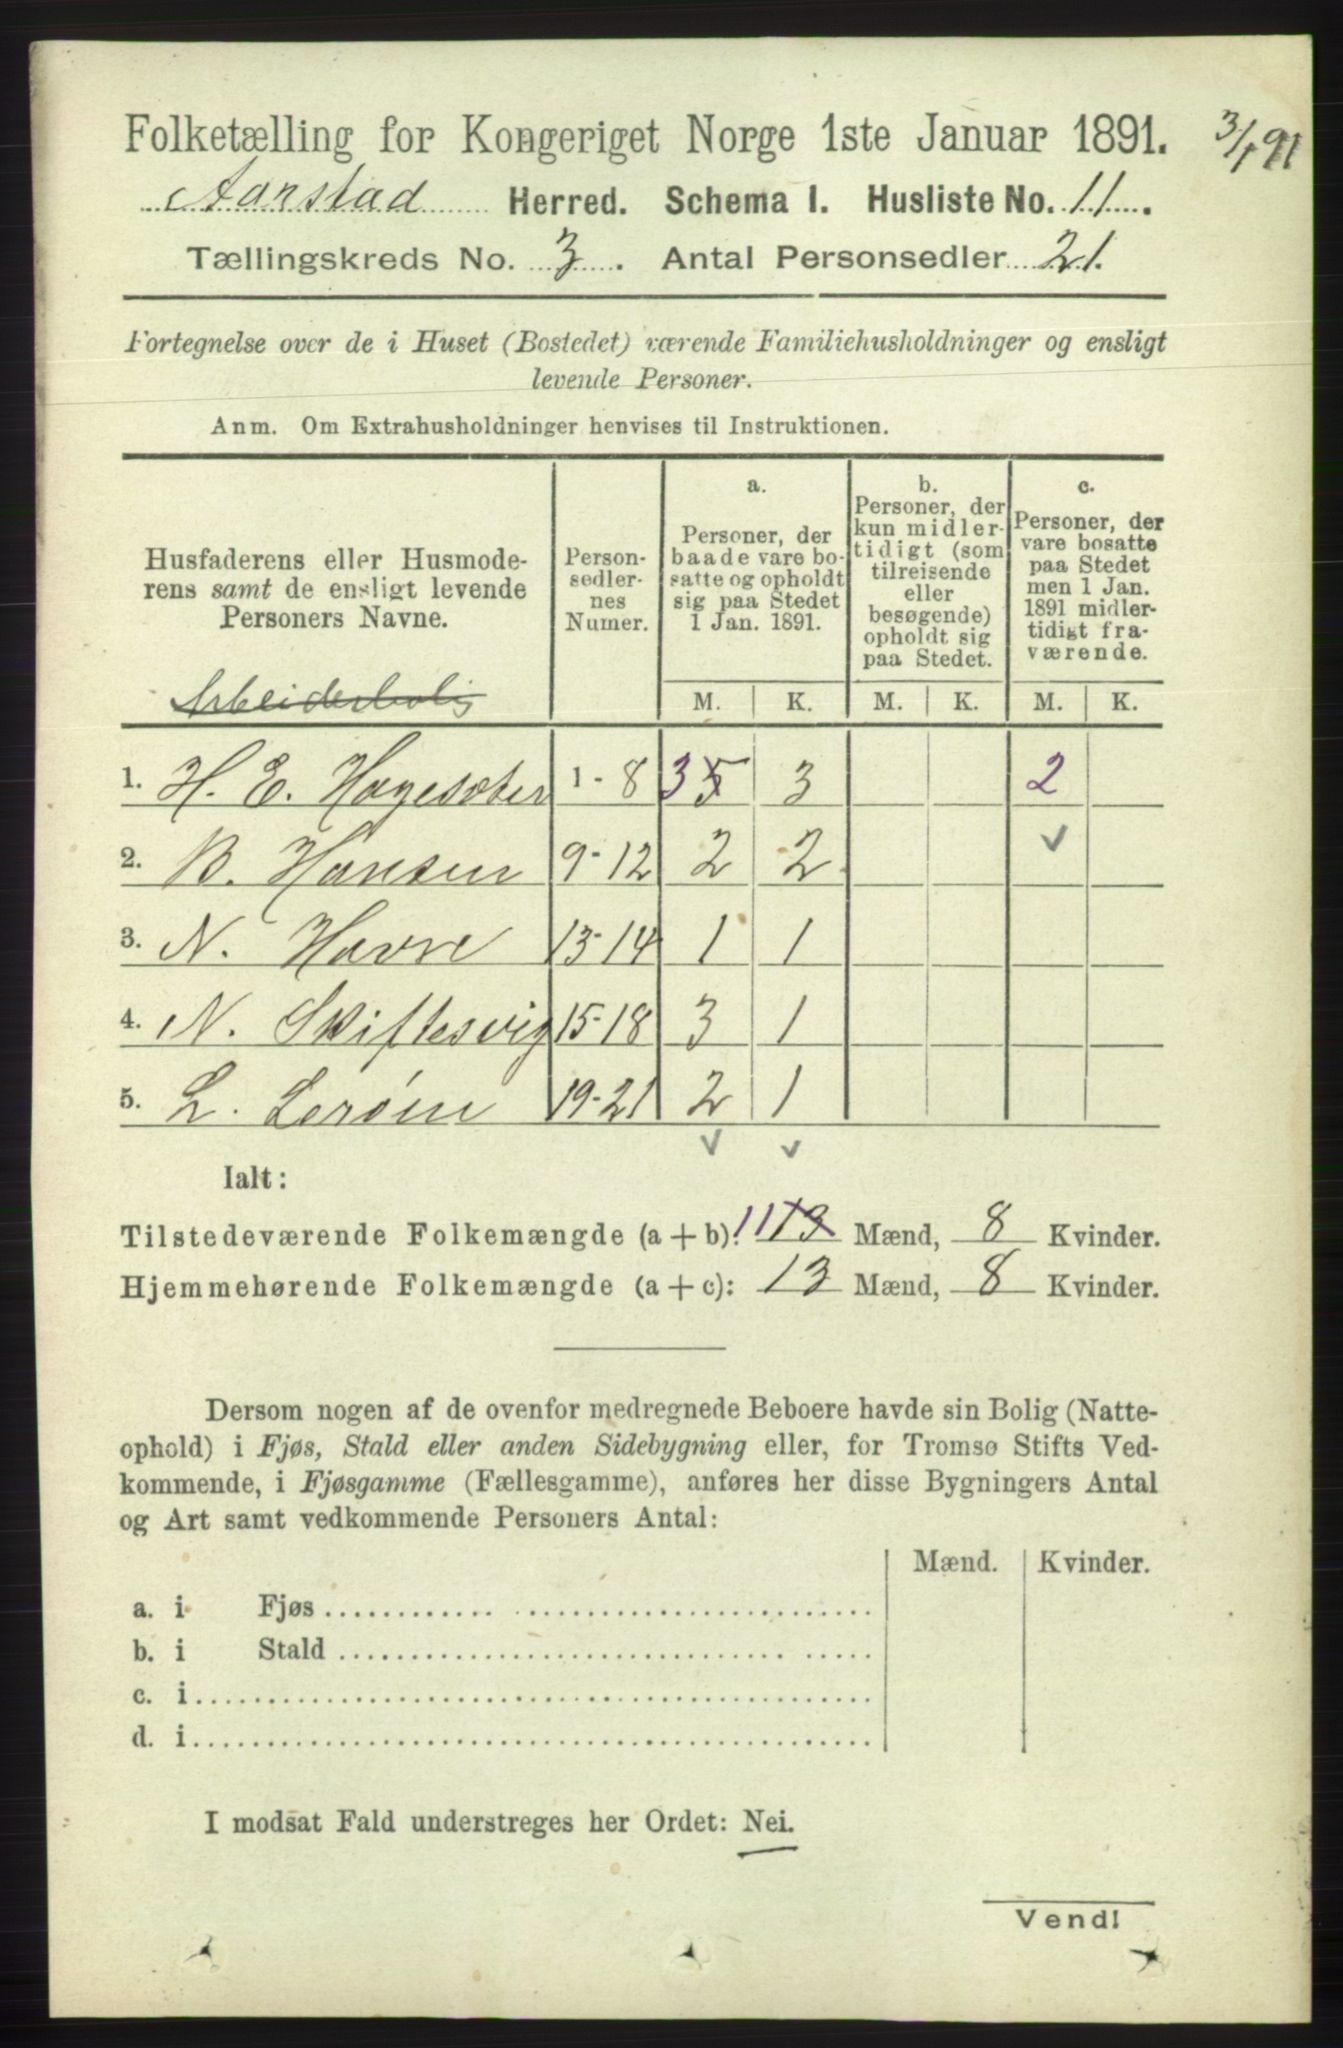 Folketælling for Kongeriget Norge 1ste Januar 1891. 3/1 91
Aarstad Herred. Schema I. Husliste No. 11.
Tællingskreds No. 3. Antal Personsedler 21.
Fortegnelse over de i Huset (Bostedet) værende Familiehusholdninger og ensligt
levende Personer.
Anm. Om Extrahusholdninger henvises til Instruktionen.
Husfaderens eller Husmode-
rens samt de ensligt levende
Personers Navne.
Arbeiderbolig
Person-
sedler-
nes
Numer.
a.
Personer, der
baade vare bo-
satte og opholdt
sig paa Stedet
1 Jan. 1891.
b.
Personer, der
kun midler-
tidigt (som
tilreisende
eller
besøgende)
opholdt sig
paa Stedet.
c.
Personer, der
vare bosatte
paa Stedet
men 1 Jan.
1891 midler-
tidigt fra-
værende.
M. K. M. K. M. K.
1. H. E. Hagesæter 1-8 3 5 3 2
2. B. Hansen 9-12 2 2
3. N. Havre 13-14 1 1
4. N. Skiftesvig 15-18 3 1
5. L. Lerøen 19-21 2 1
Ialt:
Tilstedeværende Folkemængde (a + b): 11 13 Mænd, 8 Kvinder.
Hjemmehørende Folkemængde (a + c): 13 Mænd, 8 Kvinder.
Dersom nogen af de ovenfor medregnede Beboere havde sin Bolig (Natte-
ophold) i Fjøs, Stald eller anden Sidebygning eller, for Tromsø Stifts Ved-
kommende, i Fjøsgamme (Fællesgamme), anføres her disse Bygningers Antal
og Art samt vedkommende Personers Antal:
Mænd. Kvinder.
a. i Fjøs
b. i Stald
c. i
d. i
I modsat Fald understreges her Ordet: Nei.
Vend!